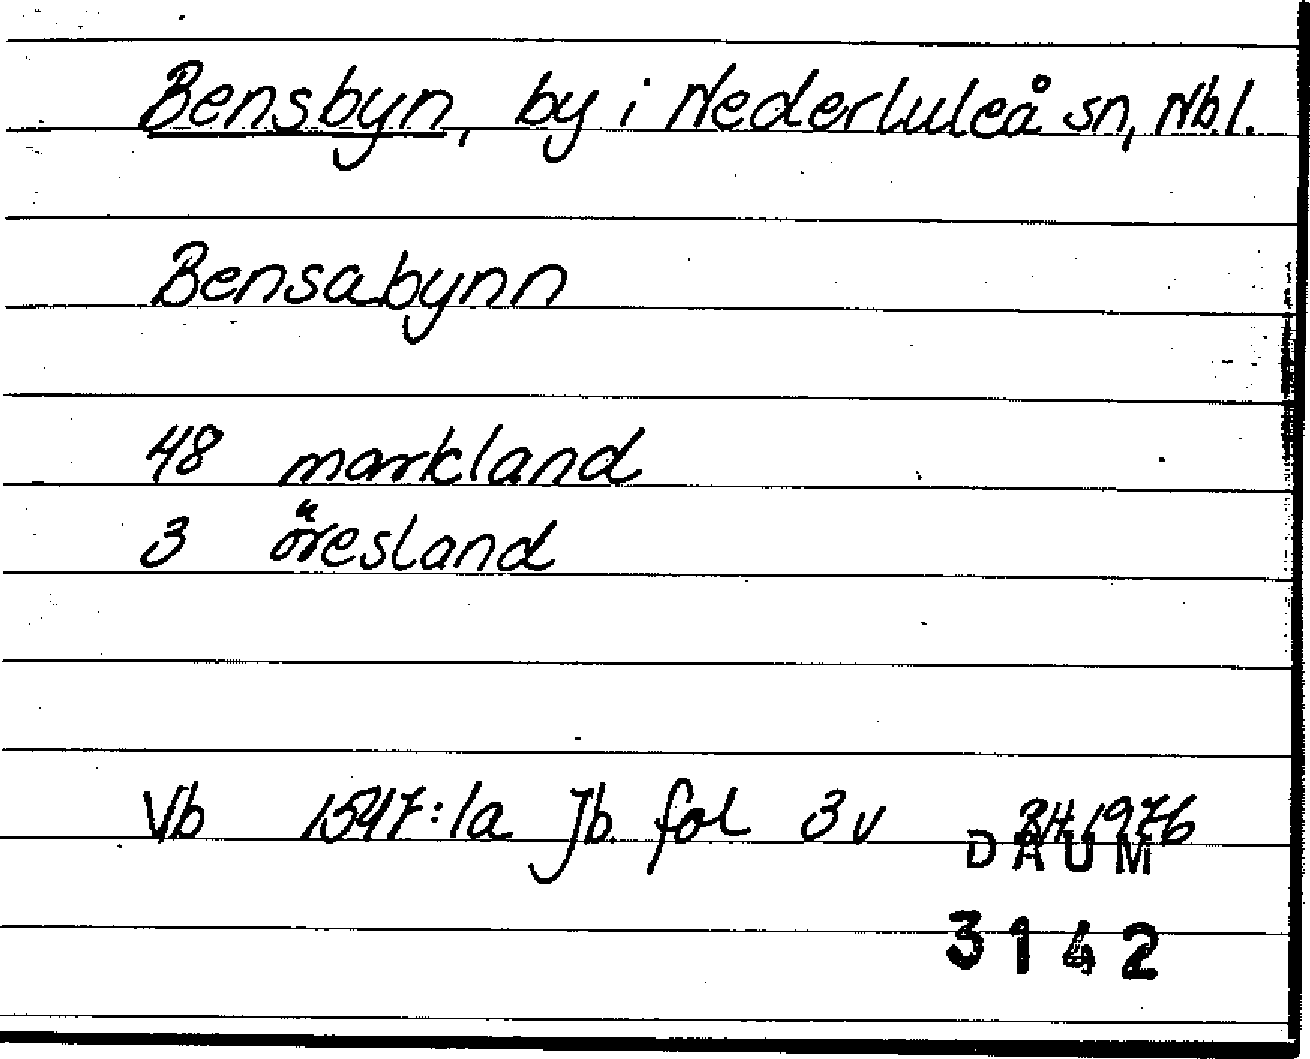 Bensbyn, by i Nederluleå sn, Nbl.
Bensabynn
48 markland
3 öresland
Vb 1547:1a Jb fol 3v BH 1976
DAUM
3142